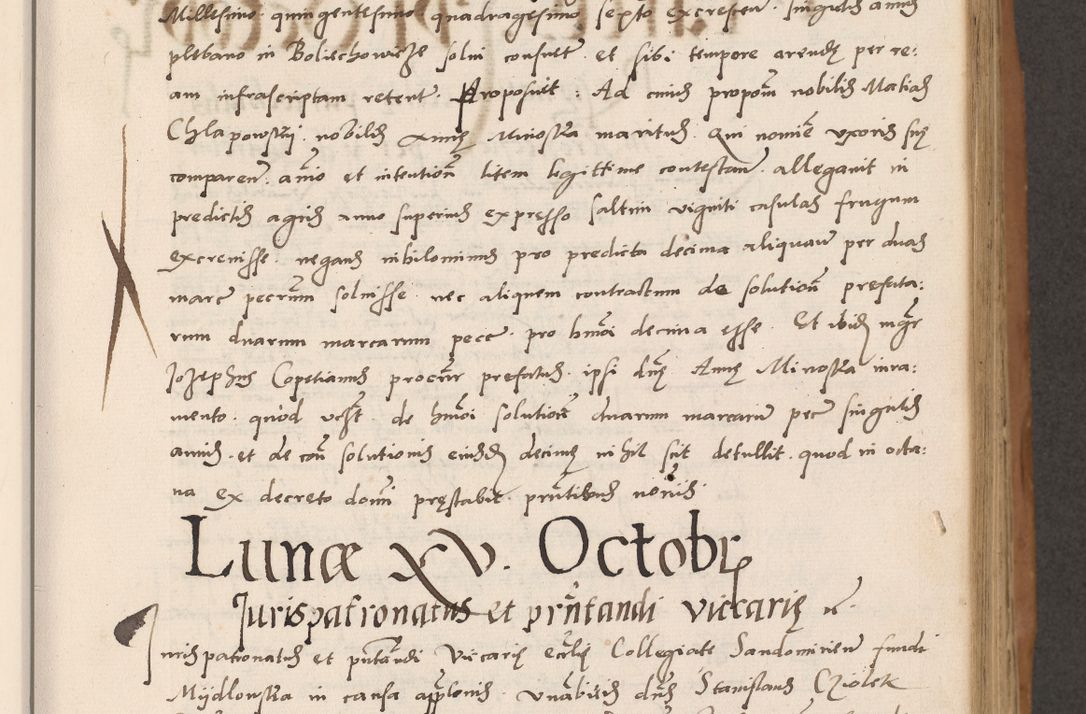 Millesimo quingentesimo quadragesimo sexto excrescen singulis annis
plebano in Bolechowicze solui consuet et sibi tempore arendę per re-
am infrascriptam retent. Proposuit: Ad cuius proposm nobilis Matias
Chlapowski nobilis Annę Minoska maritus qui nomine vxoris suę
comparen. animo et intention litem legittime contestan. allegauit in
predictis agris anno superius expresso saltim viginti casulas frugum
excreuisse. negans nihilominus pro predicta decima aliquam per duas
marc pecunm soluisse nec aliquem contractum de solution prefata-
rum duarum marcarum pecc pro hmoi decima esse. Et ibidem mgr
Jozephus Copetianus procur prefatus ipsi dnę Annę Minoska iura-
mento. quod de hmoi solution duarum marcarum pecc singulis
annis et de con solutionis eiusdem decimę nihil scit detullit. quod in octa-
ua ex decreto domi pręstabit prntibus notis.
Lunæ XV. Octobr
Jurispatronatus et prntandi viccarię
Jurispatronatus et pntandi Viccarię ecclie Collegiate Sandomirien fundi
Myidlowska in causa applonis Vnabilis dns Stanislaus Cziolek